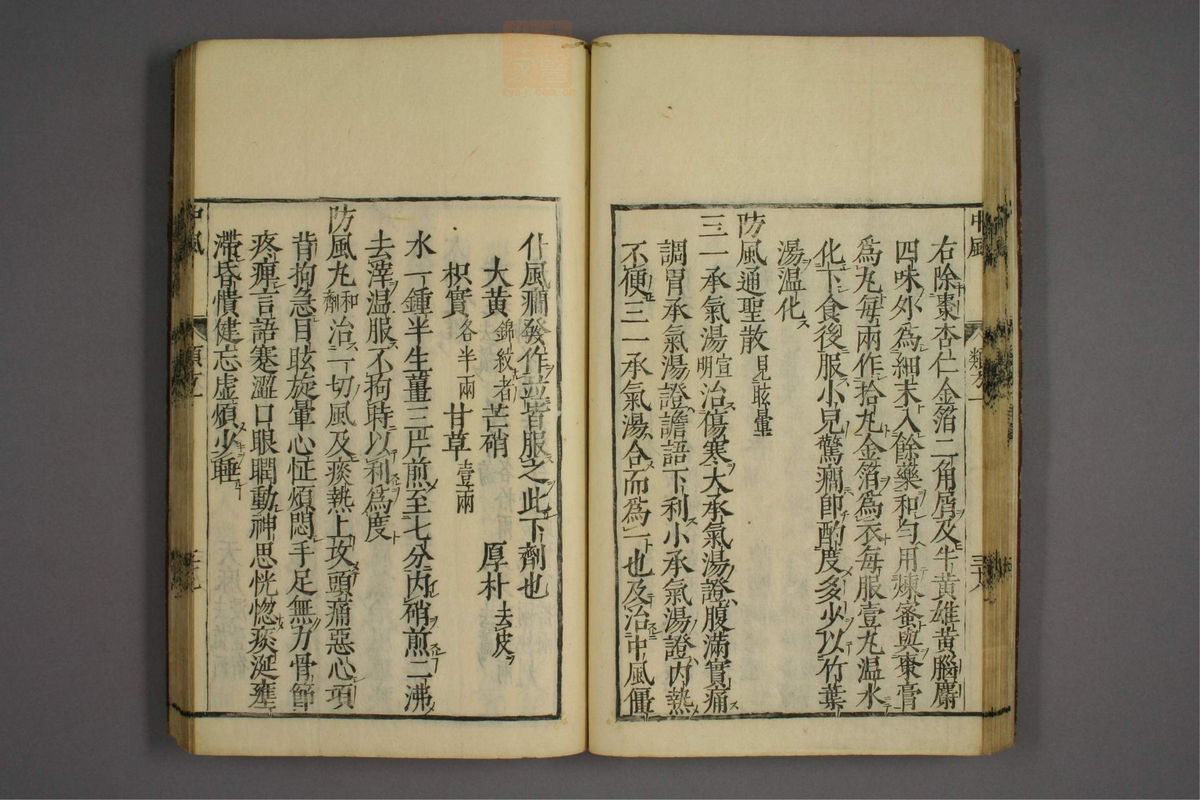 中風
類方一
右除棗杏仁金箔二角屑及牛黄雄黄腦麝
四味外為細末入餘藥和勻用煉蜜與棗膏
為丸每兩作拾丸金箔為衣每服壹丸温水
化下食後服小兒驚癇即酌度多少以竹葉
湯温化ス
防風通聖散見眩暈
三一承氣湯宣明治傷寒大承氣湯證腹滿實痛
調胃承氣湯證譫語下利小承氣湯證内熱
不便三一承氣湯合而為一也及治中風僵
仆風癎發作並皆服之此下劑也
大黄錦紋者 芒硝 厚朴去皮
枳實各半兩 甘草壹兩
水一鍾半生薑三片煎至七分内硝煎二沸
去滓温服不拘時以利為度
防風丸和劑治一切風及痰熱上攻頭痛惡心項
背拘急目眩旋暈心怔煩悶手足無力骨節
疼痺言語蹇澀口眼瞤動神思恍惚痰涎壅
滯昏憒健忘虚煩少睡
中風
類方一